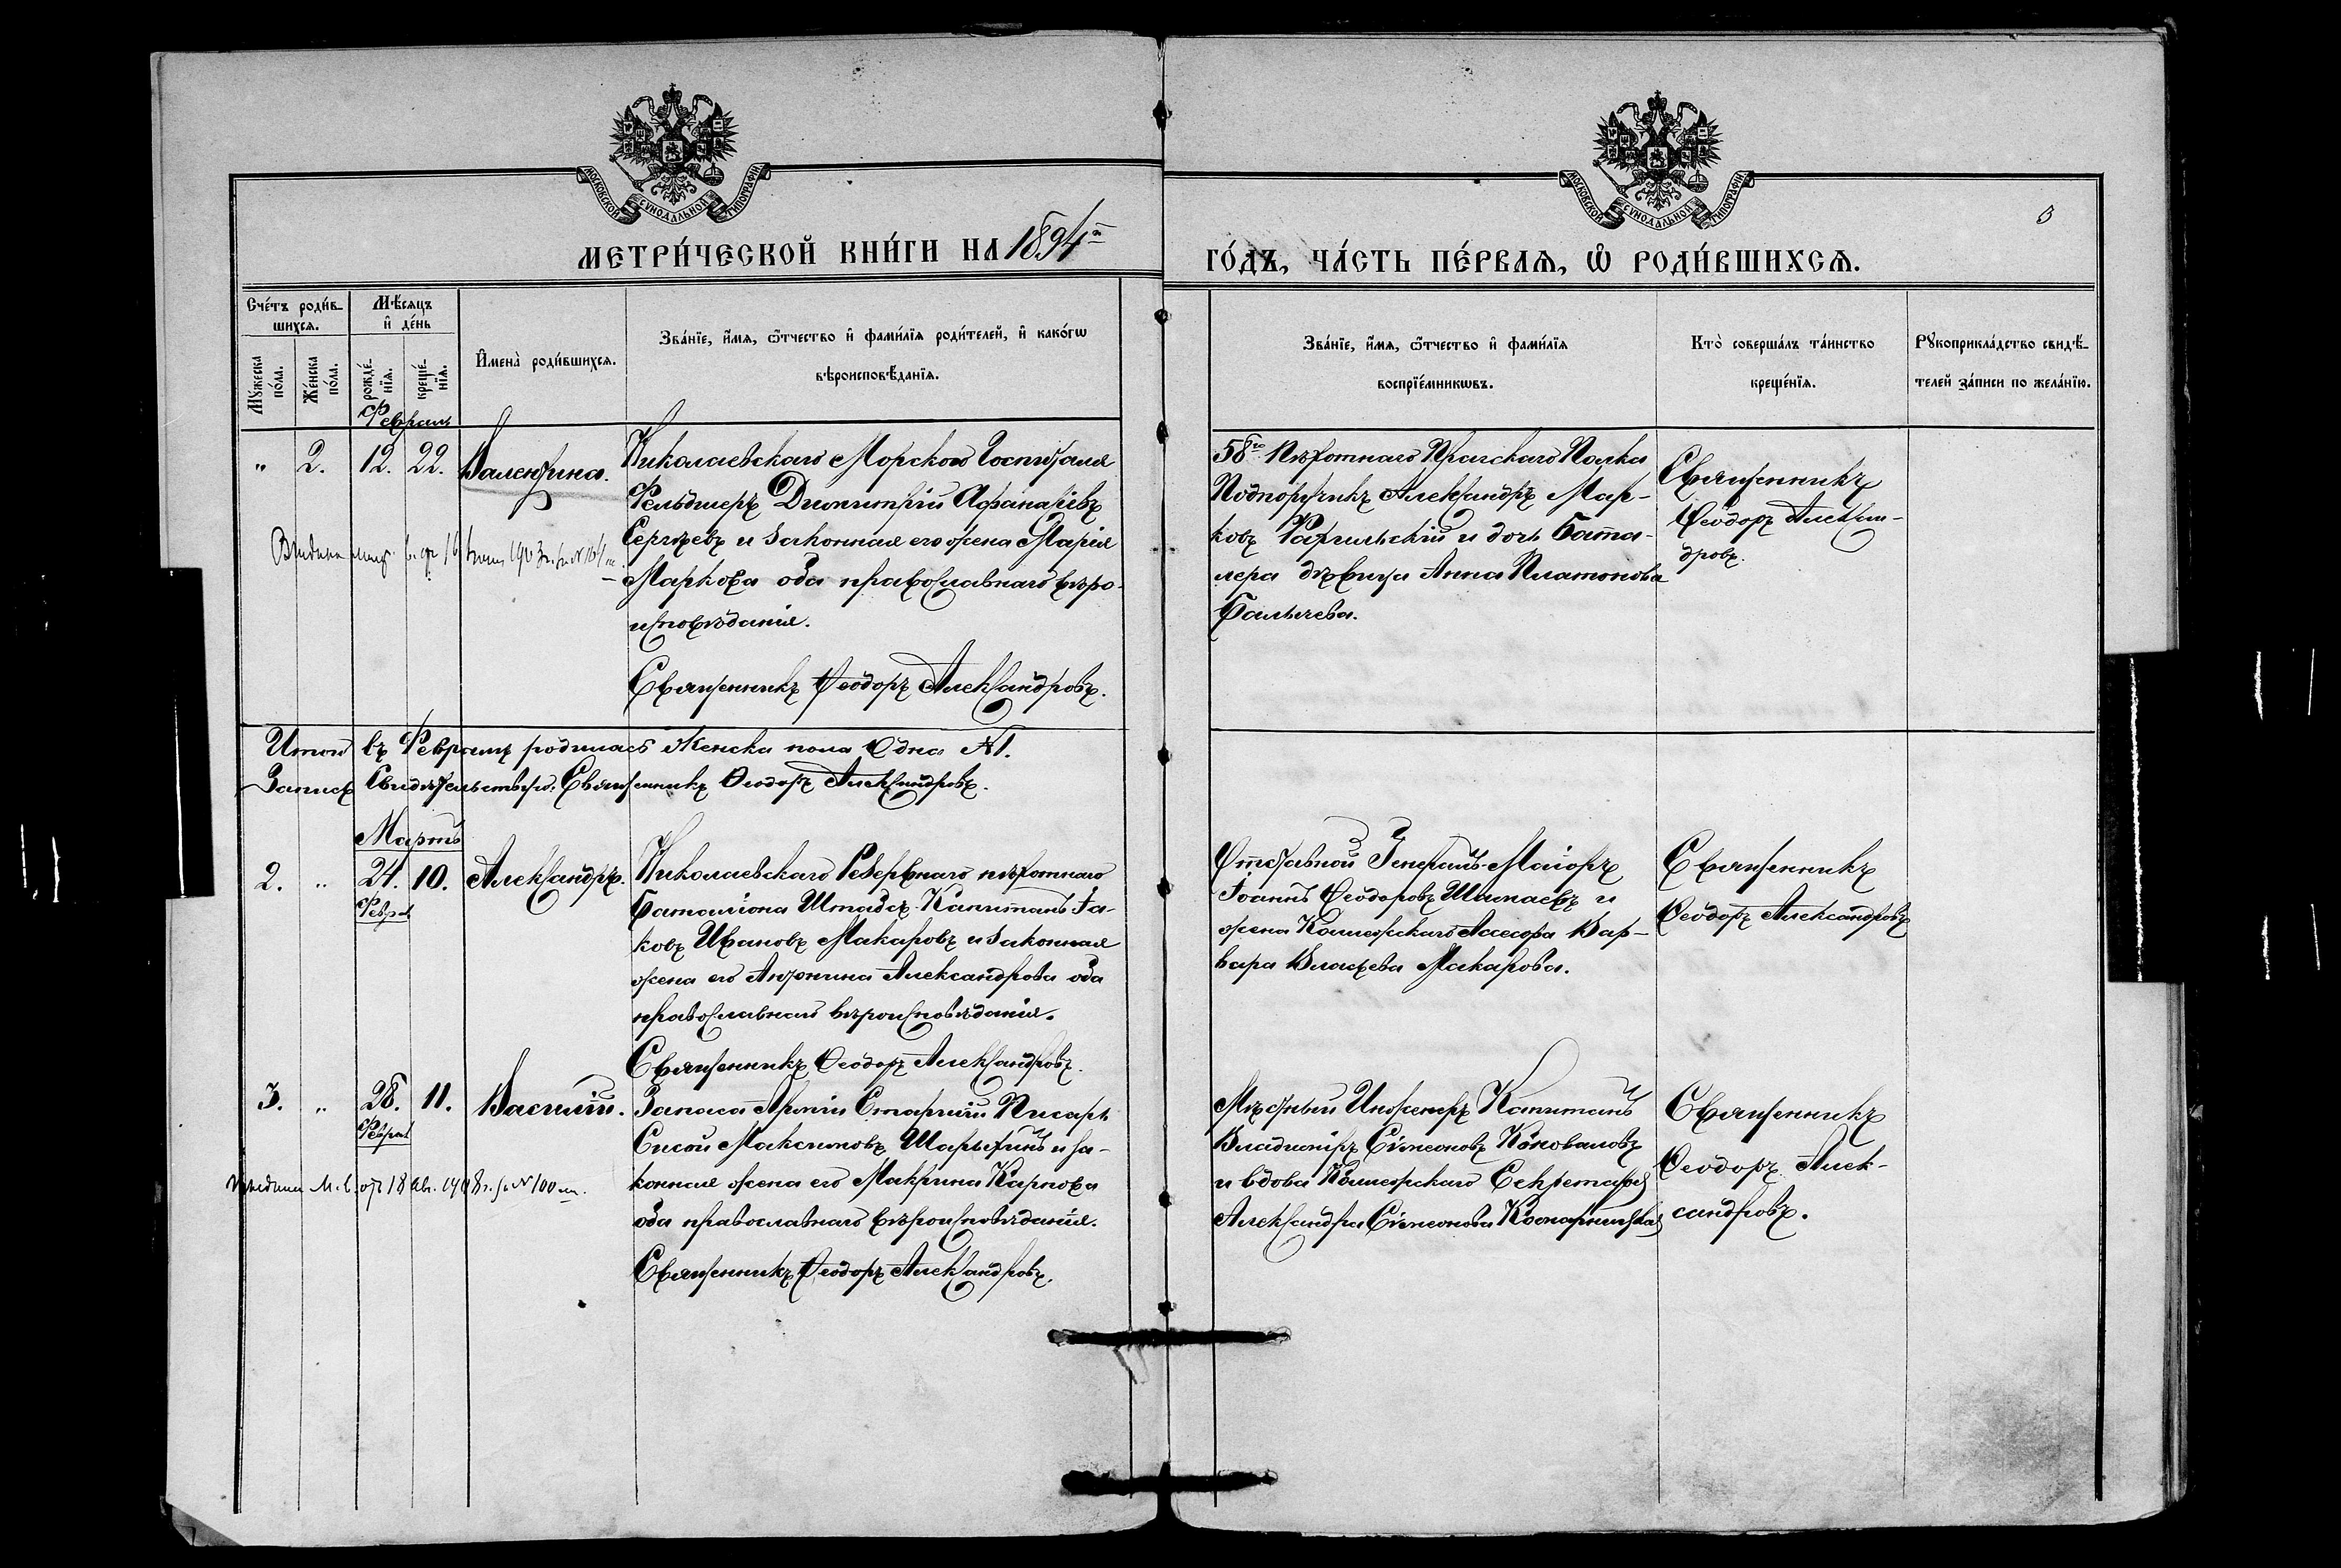 МОСКОВСКОЙ СѴНОДАЛЬНОЙ ТИПОГРАФІИ
МОСКОВСКОЙ СѴНОДАЛЬНОЙ ТИПОГРАФІИ
3
МЕТРИ́ЧЕСКОЙ КНИ́ГИ НА 1894й
ГО́ДЪ, ЧА́СТЬ ПЕ́РВАѦ, Ѡ РОДИ́ВШИХСѦ.
Сче́тъ роди́в-
шихсѧ.
Мѣ́сѧцъ
и҆ де́нь
Мꙋ́жеска
по́ла.
Же́нска
по́ла.
рожде́-
нїѧ.
креще́-
нїѧ.
И҆мена̀ роди́вшихсѧ.
Зва́нїе, и҆́мѧ, ѻ҆́тчество и҆ фами́лїѧ роди́телей, и҆ како́гѡ
вѣроисповѣ́данїѧ.
Зва́нїе, и҆́мѧ, ѻ҆́тчество и҆ фами́лїѧ
воспрїе́мникѡвъ.
Кто̀ соверша́лъ та́инство
креще́нїѧ.
Рꙋкоприкла́дство свидѣ́-
телей за́писи по жела́нїю.
Февраль
" 2. 12. 22. Валентина.
Николаевскаго Морскаго Госпиталя
Фельдшеръ Димитрій Афанасіевъ
Сергѣевъ и законная его жена Марія
Маркова оба православнаго вѣро-
исповѣданія.
Священникъ Ѳеодоръ Александровъ.
58го Пѣхотнаго Прагскаго Полка
Подпоручикъ Александръ Мар-
ковъ и дочь Бата-
лера дѣвица Анна Платонова
Балычева.
Священникъ
Ѳеодоръ Алексан-
дровъ.
Выдана 16 1903 г. за №
Итого въ Февралѣ родилась Женска пола Одна №1.
Запись Свидѣтельствую. Священникъ Ѳеодоръ Александровъ.
Мартъ
2. " 24. 10. Александръ.
Феврал
Николаевскаго Резервнаго пѣхотнаго
Баталіона Штабсъ-Капитанъ Іа-
ковъ Ивановъ Макаровъ и законная
жена его Антонина Александрова оба
православнаго вѣроисповѣданія.
Священникъ Ѳеодоръ Александровъ.
Отставной Генералъ-Маіоръ
Іоаннъ Ѳеодоровъ и
жена Коллежскаго Ассесора Вар-
вара Власьева Макарова.
Священникъ
Ѳеодоръ Александровъ
3. " 28. 11. Василій.
Феврал
Запаса Арміи Старшій Писарь
Сисой Максимовъ Шарыгинъ и за-
конная жена его Макрина Карпова
оба православнаго вѣроисповѣданія.
Священникъ Ѳеодоръ Александровъ.
Мѣстный Инженеръ Капитанъ
Владиміръ Сѵмеоновъ Коноваловъ
и вдова Коллежскаго Секретаря
Александра Сѵмеонова
Священникъ
Ѳеодоръ Алек-
сандровъ.
Выдана М. С. от 18 Авг. 1908 г. за № 100 м.